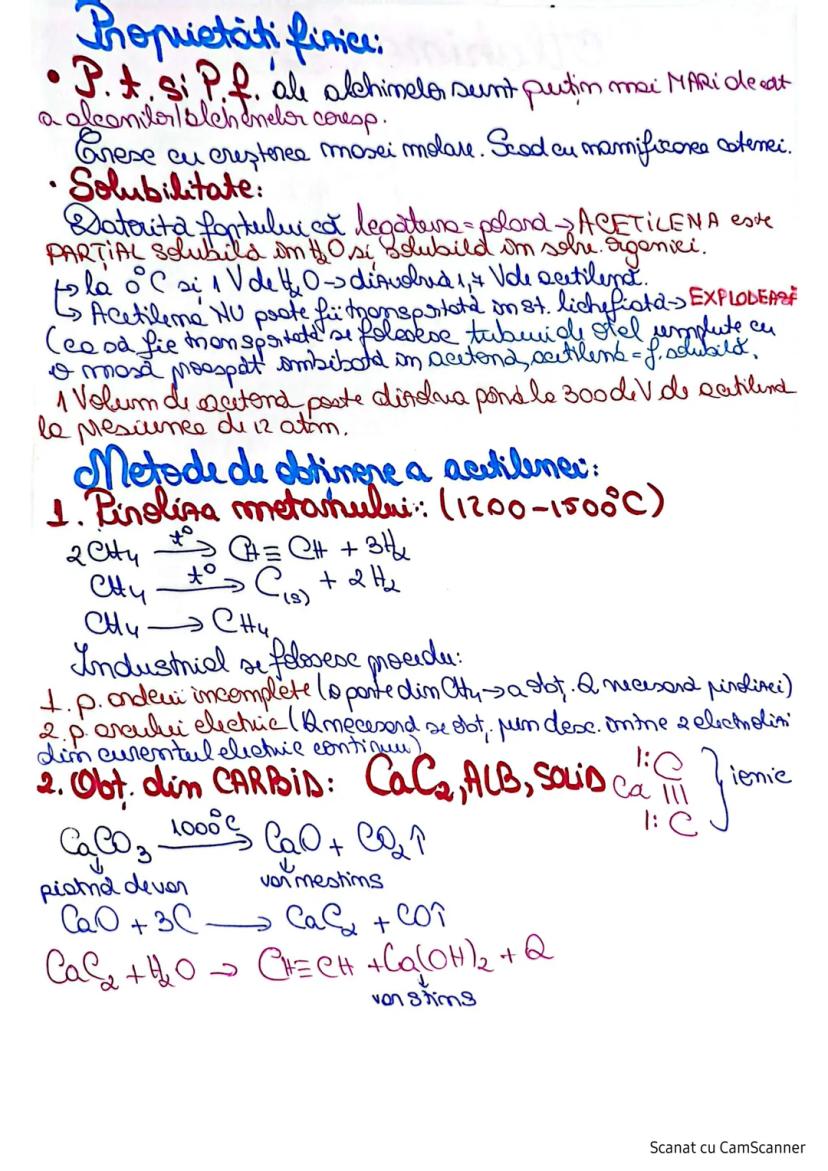 Proprietăți fizice:
• P.t. și P.f. ale alchinelor sunt puțin mai MARi decat
a alcanilor/alchenelor coresp.
Cresc cu creșterea masei molare. Scad cu ramificarea catenei.
• Solubilitate:
Datorită faptului că legătura = polară → ACETiLENA este
PARȚiAL solubilă în H₂O și solubilă în solv. organici.
↳ la 0°C și 1 V de H₂O → dizolvă 1,7 V de acetilenă.
↳ Acetilena NU poate fi transportată in st. lichefiată → EXPLODEAZĂ
(ca să fie transportată se folosesc tuburi de oțel umplute cu
o masă îmbibată în acetonă, acetilena = f. solubilă.
1 Volum de acetonă poate dizolva până la 300 de V de acetilenă
la presiunea de 12 atm.
Metode de obținere a acetilenei:
1. Piroliza metanului: (1200-1500°C)
2CH₄ t°→ CH≡CH + 3H₂
CH₄ t°→ C(s) + 2H₂
CH₄ → CH₄
Industrial se folosesc procedee:
1. p. arderii incomplete (o parte din CH₄ → a obț. Q necesară pirolizei)
2. p. arcului electric (Q necesară se obț. prin desc. între 2 electrozi
din curentul electric continuu)
2. Obț. din CARBiD: CaC₂, ALB, SOLiD Ca 1:C ||| 1:C } ionic
CaCO₃ 1000°C→ CaO + CO₂↑
piatră de var var nestins
CaO + 3C → CaC₂ + CO↑
CaC₂ + H₂O → CH≡CH + Ca(OH)₂ + Q
var stins
Scanat cu CamScanner